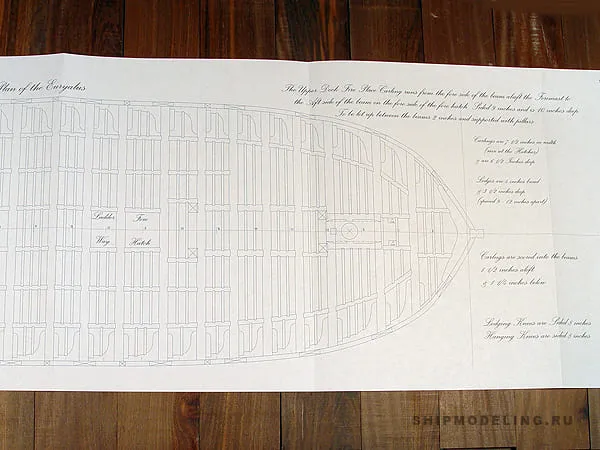 Plan of the Euryalus
The Upper Deck Fire Stove Carling runs from the fore side of the beam abaft the Foremast to
the Aft side of the beam on the fore side of the fore hatch. Sided 9 inches and is 10 inches deep
To be let up between the beams 2 inches and supported with pillars
Carlings are 7 1/2 inches in width
(run at the Hatches)
& are 6 1/2 Inches deep
Ledges are 5 inches broad
& 3 1/2 inches deep
(spaced 9 - 12 inches apart)
Ladder Fore
Way Hatch
Carlings are scored into the beams
1 1/2 inches aloft
& 1 1/4 inches below
Lodging Knees are Sided 8 inches
Hanging Knees are sided 8 inches
SHIPMODELING.RU